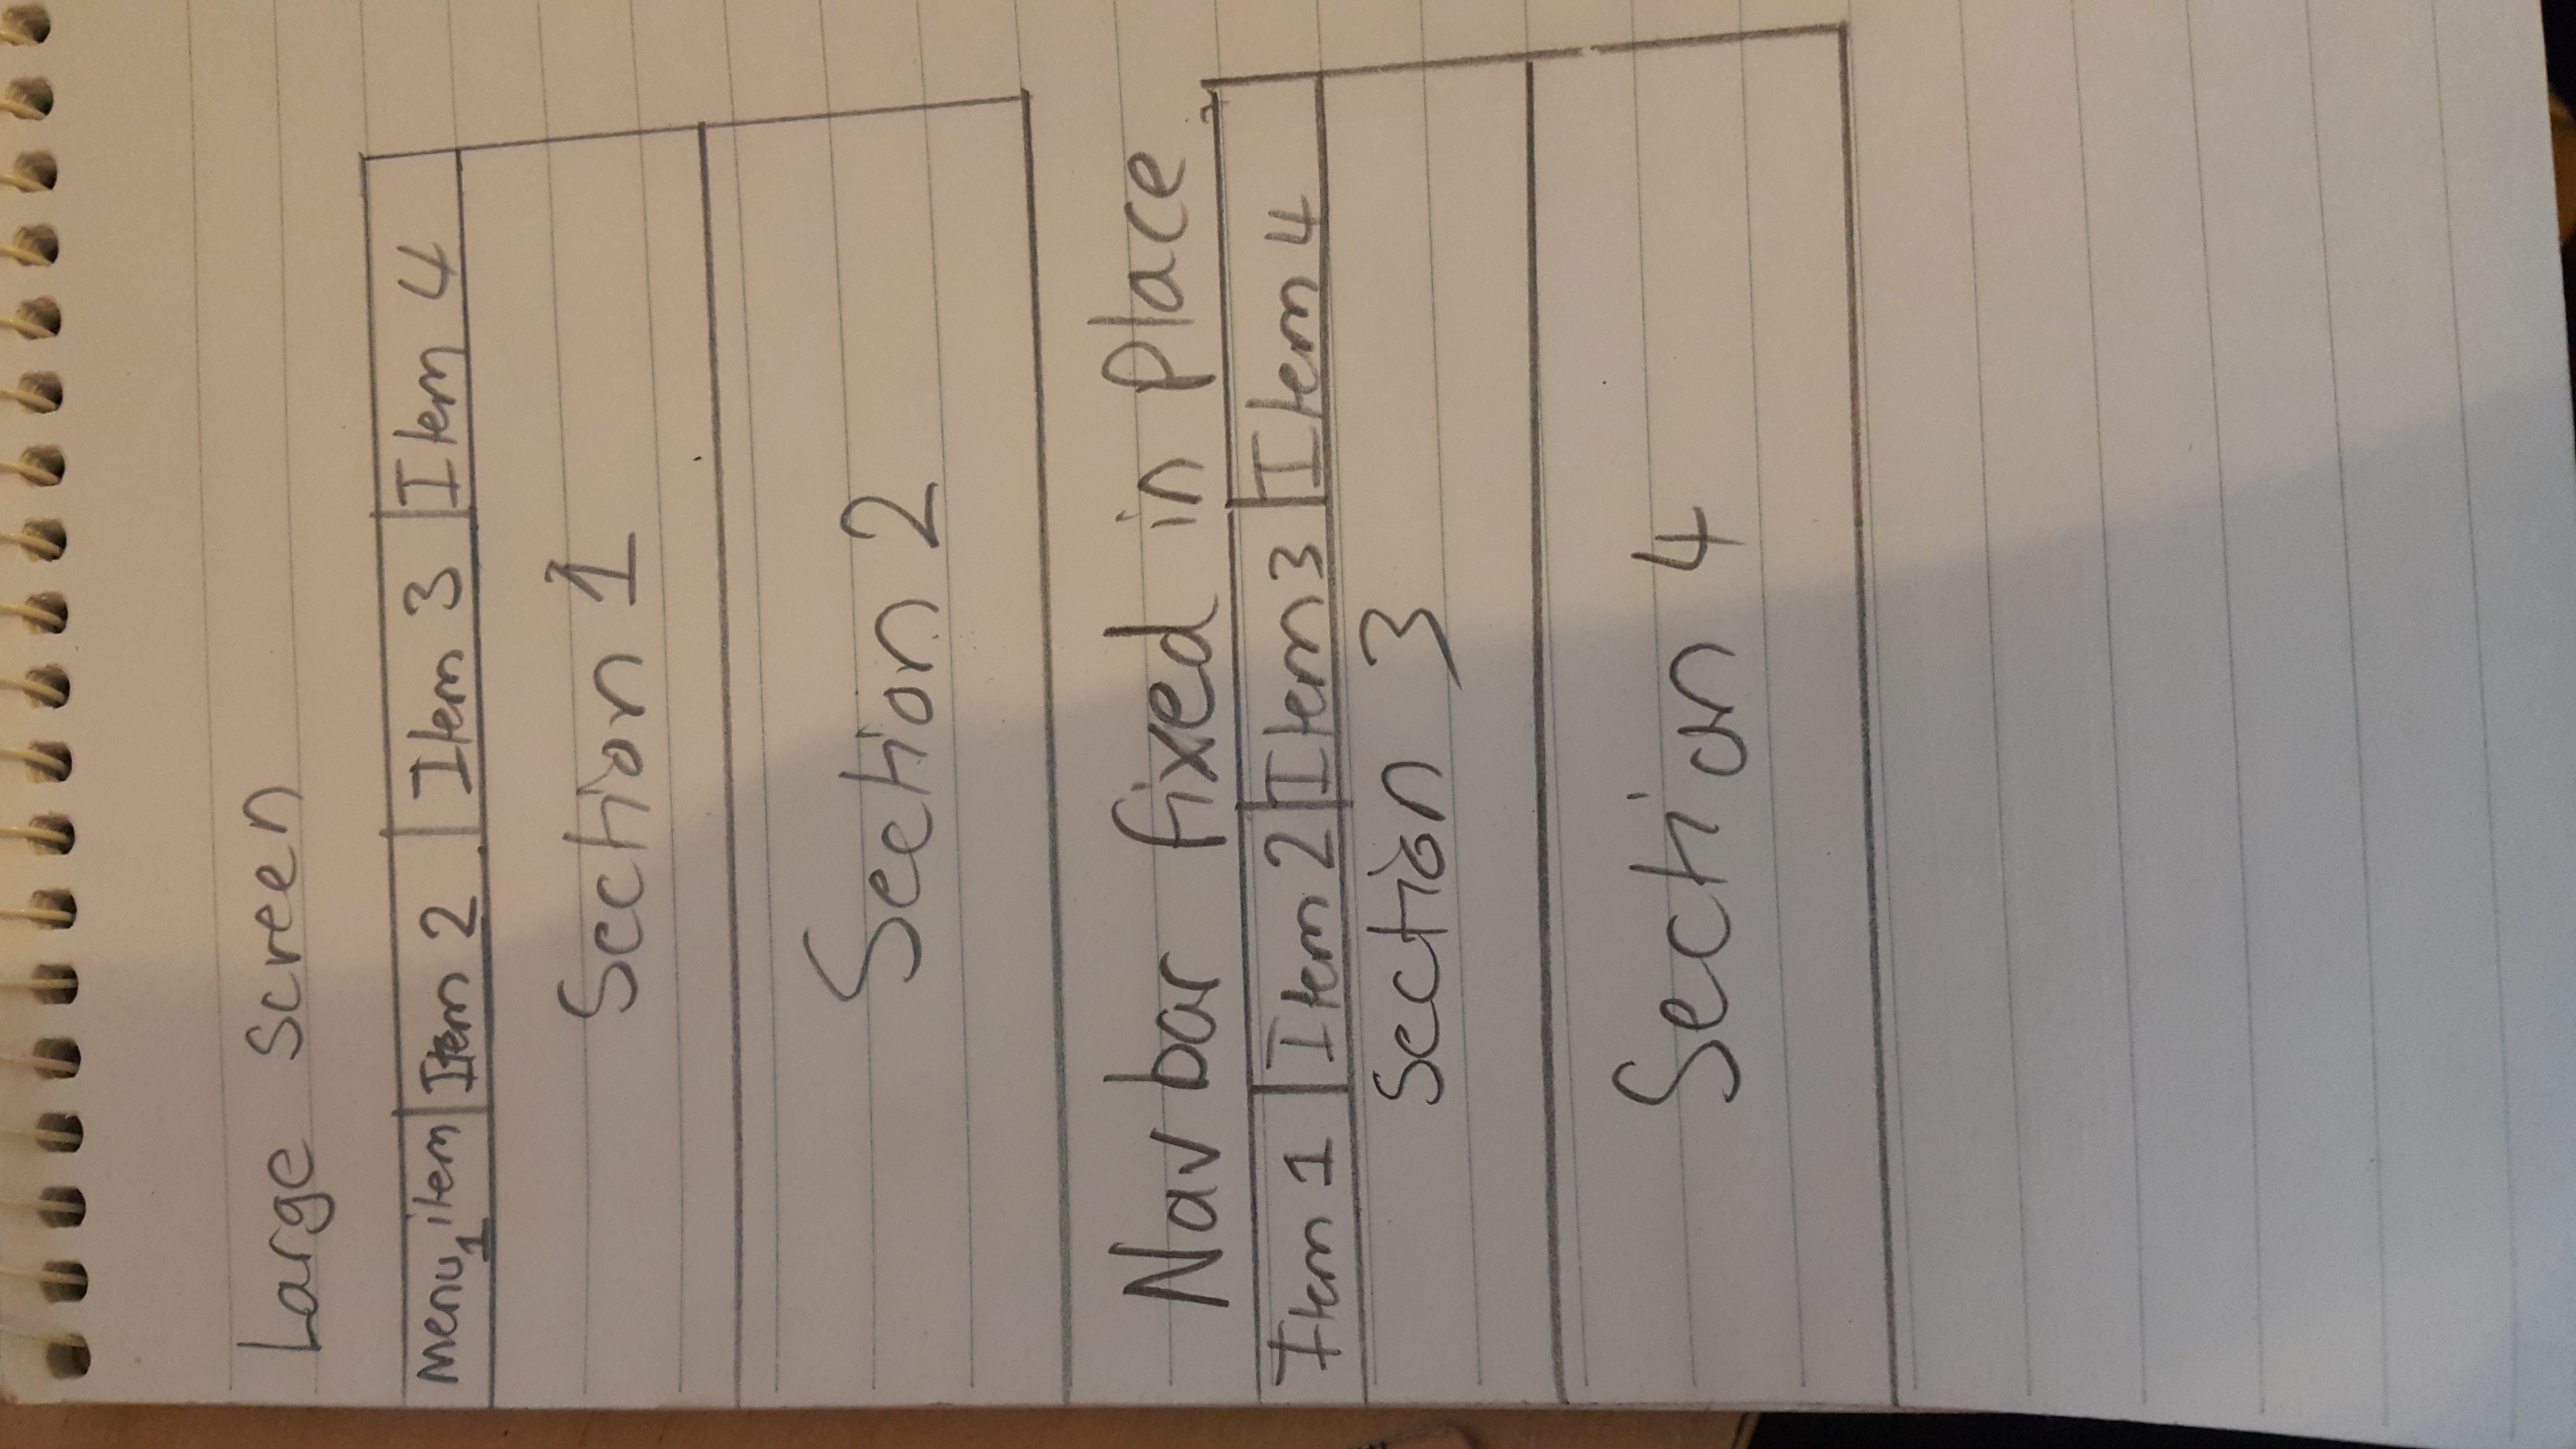 Large screen
Menu item 1 Item 2 Item 3 Item 4
Section 1
Section 2
Navbar fixed in place
Item 1 Item 2 Item 3 Item 4
Section 3
Section 4